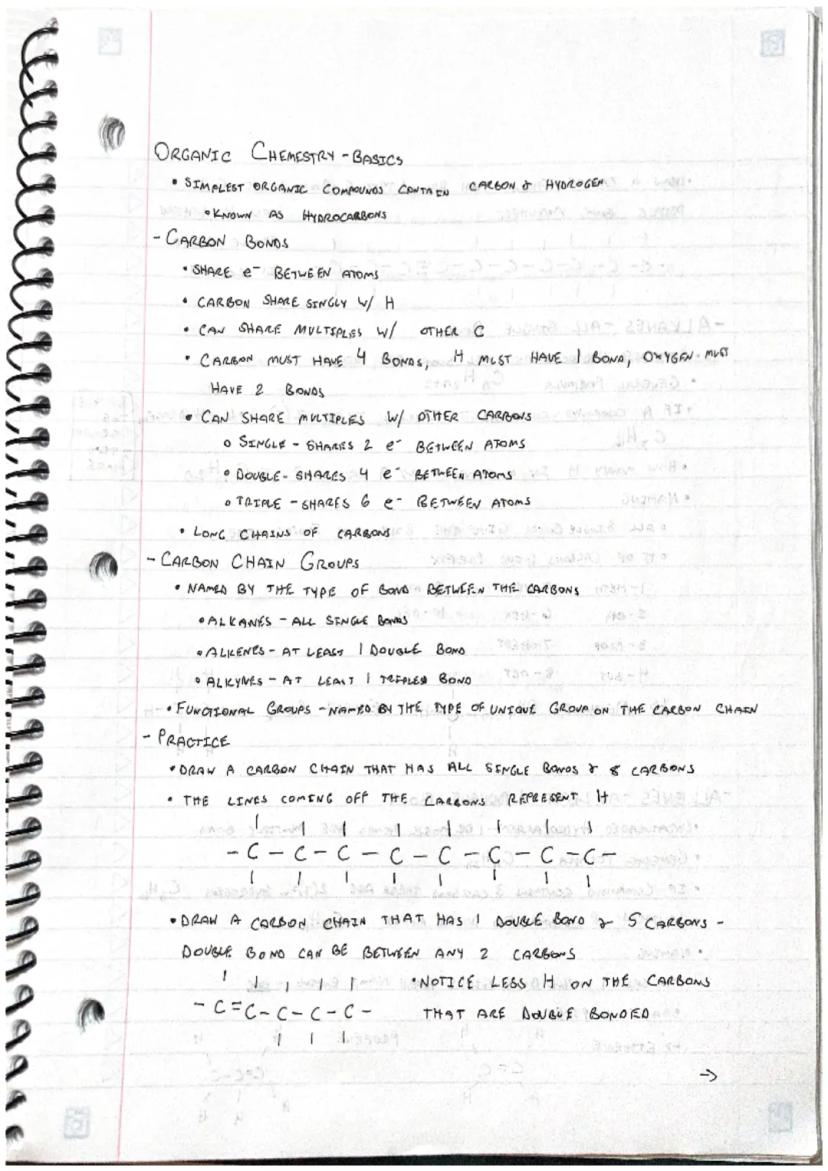 ORGANIC CHEMESTRY - BASICS
• SIMPLEST ORGANIC COMPOUNDS CONTAIN CARBON & HYDROGEN
• KNOWN AS HYDROCARBONS
- CARBON BONDS
• SHARE e⁻ BETWEEN ATOMS
• CARBON SHARE SINGLY W/ H
• CAN SHARE MULTIPLES W/ OTHER C
• CARBON MUST HAVE 4 BONDS, H MUST HAVE 1 BOND, OXYGEN MUST
HAVE 2 BONDS
• CAN SHARE MULTIPLES W/ OTHER CARBONS
○ SINGLE - SHARES 2 e⁻ BETWEEN ATOMS
○ DOUBLE - SHARES 4 e⁻ BETWEEN ATOMS
○ TRIPLE - SHARES 6 e⁻ BETWEEN ATOMS
• LONG CHAINS OF CARBONS
- CARBON CHAIN GROUPS
• NAMED BY THE TYPE OF BOND BETWEEN THE CARBONS
• ALKANES - ALL SINGLE BONDS
• ALKENES - AT LEAST 1 DOUBLE BOND
○ ALKYNES - AT LEAST 1 TRIPLE BOND
• FUNCTIONAL GROUPS - NAMED BY THE TYPE OF UNIQUE GROUP ON THE CARBON CHAIN
- PRACTICE
• DRAW A CARBON CHAIN THAT HAS ALL SINGLE BONDS & 8 CARBONS
• THE LINES COMING OFF THE CARBONS REPRESENT H
- C - C - C - C - C - C - C - C -
• DRAW A CARBON CHAIN THAT HAS 1 DOUBLE BOND & 5 CARBONS -
DOUBLE BOND CAN BE BETWEEN ANY 2 CARBONS
• NOTICE LESS H ON THE CARBONS
- C = C - C - C - C - THAT ARE DOUBLE BONDED
→